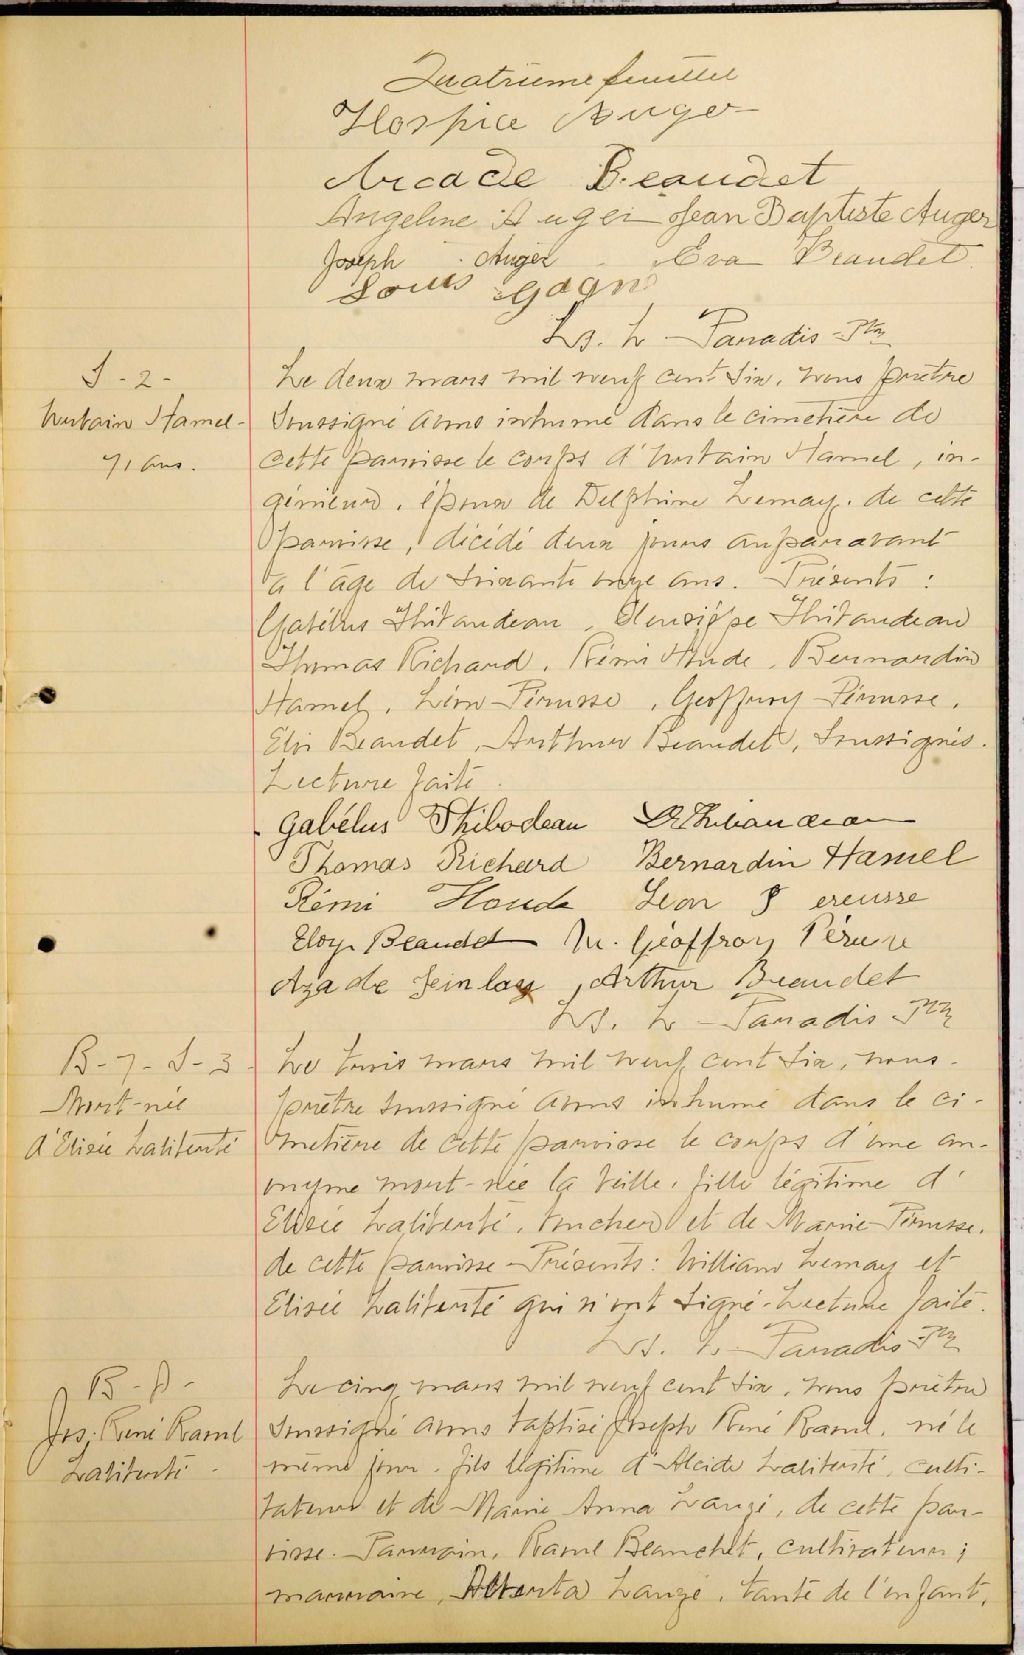 Quatrième feuillet
Hospice Auger
Arcade Beaudet
Angeline Auger Jean Baptiste Auger
Joseph Auger Eva Beaudet
Louis Gagné
Ls. L. Paradis Ptre
S-2-
Urbain Hamel-
71 ans.
Le deux mars mil neuf cent six, nous prêtre
soussigné avons inhumé dans le cimetière de
cette paroisse le corps d'Urbain Hamel, in-
génieur, époux de Delphine Lemay, de cette
paroisse, décédé deux jours auparavant
à l'âge de soixante onze ans. Présents :
Gabélus Thibaudeau, Elousippe Thibaudeau
Thomas Richard, Rémi Houde, Bernardin
Hamel, Léon Pérusse, Geoffroy Pérusse,
Eloi Beaudet, Arthur Beaudet, soussignés.
Lecture faite.
Gabélus Thibodeau Thibaudeau
Thomas Richard Bernardin Hamel
Rémi Houde Leon Pereusse
Eloy Beaudet M. Géoffroy Péruse
Azade Arthur Beaudet
Ls. L. Paradis Ptre
B-7-S-3
Mort-née
d'Elisée Laliberté
Le trois mars mil neuf cent six, nous
prêtre soussigné avons inhumé dans le ci-
metière de cette paroisse le corps d'une an-
onyme mort-née la veille, fille légitime d'
Elisée Laliberté, boucher et de Marie Pérusse,
de cette paroisse. Présents : William Lemay et
Elisée Laliberté qui n'ont signé. Lecture faite.
Ls. L. Paradis Ptre
B-8-
Jos. René Raoul
Laliberté
Le cinq mars mil neuf cent six, nous prêtre
soussigné avons baptisé Joseph René Raoul, né le
même jour, fils légitime d'Alcide Laliberté, culti-
vateur et de Marie Anna Lauzé, de cette par-
oisse. Parrain, Raoul Blanchet, cultivateur ;
marraine, Alberta Lauzé, tante de l'enfant,